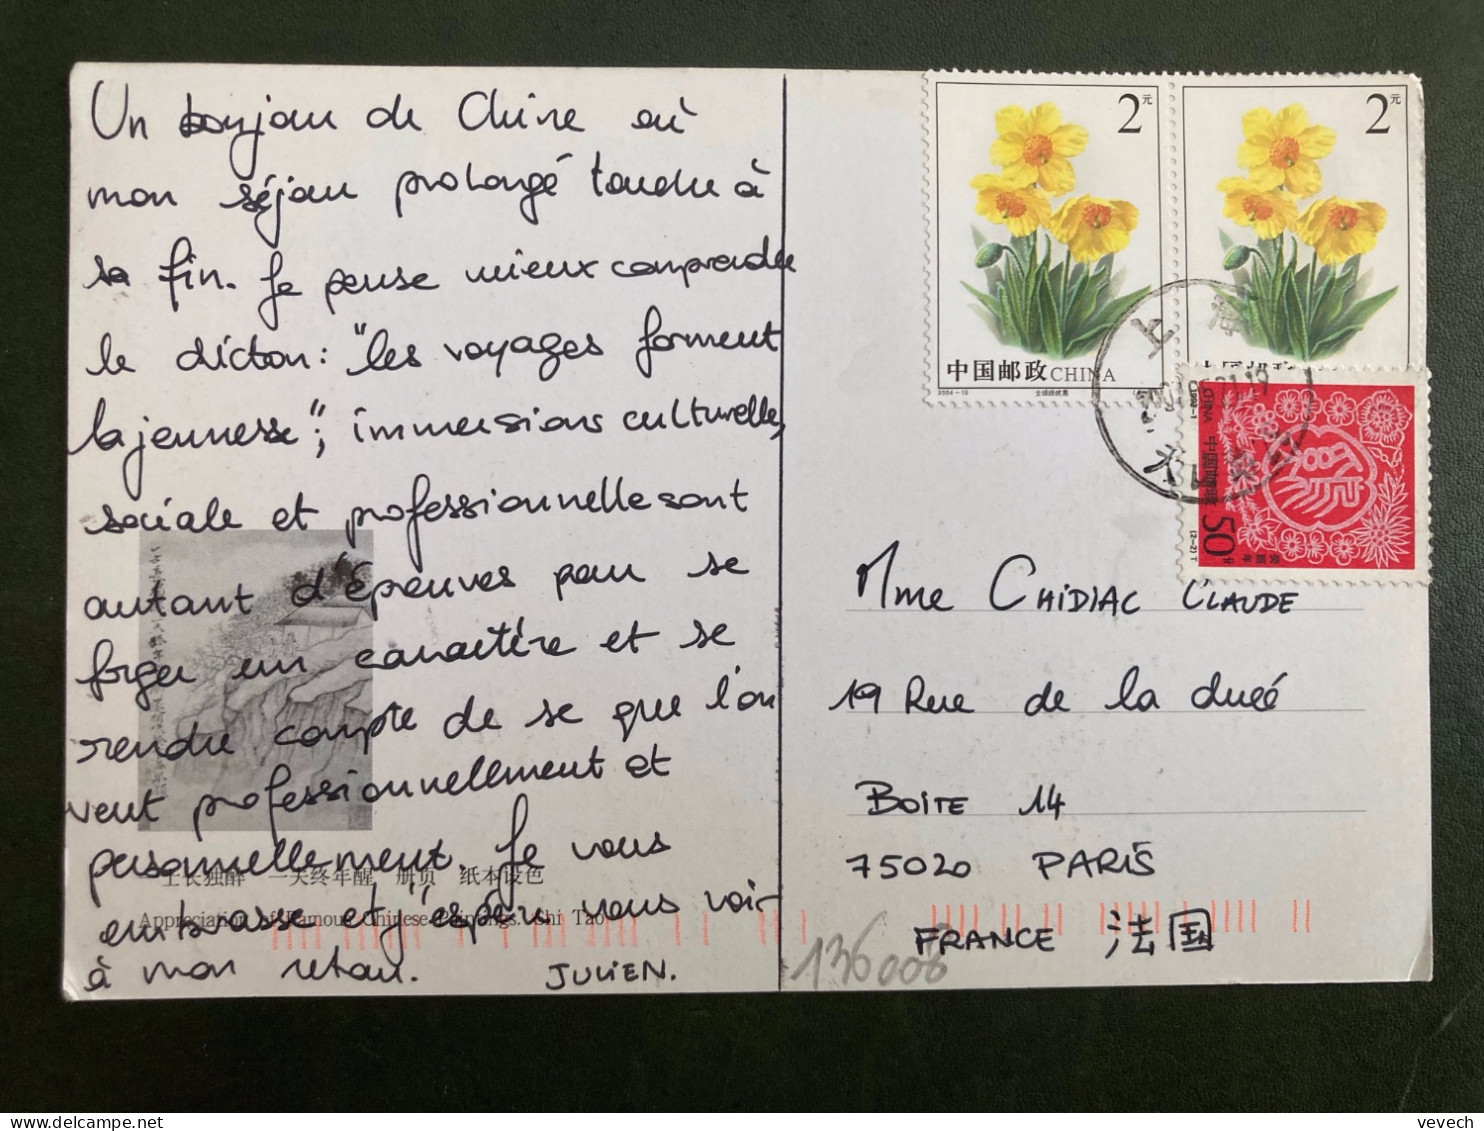 Un bonjour de Chine où
mon séjour prolongé touche à
sa fin. Je pense mieux comprendre
le dicton: "les voyages forment
la jeunesse"; immersions culturelle,
sociale et professionnelle sont
autant d'épreuves pour se
forger un caractère et se
rendre compte de se que l'on
veut professionnellement et
personnellement. Je vous
embrasse et j'espère vous voir
à mon retour. JULIEN.
一夫终年醒 册页 纸本设色
Appreciation of Famous Chinese Paintings. Shi Tao
2元
中国邮政CHINA
2004-18
2元
中国邮政
上海
50分
中国邮政
CHINA
1993-1
(2-2)T
Mme CHIDIAC CLAUDE
19 Rue de la dueé
BOITE 14
75020 PARIS
FRANCE 法国
136008
vevech